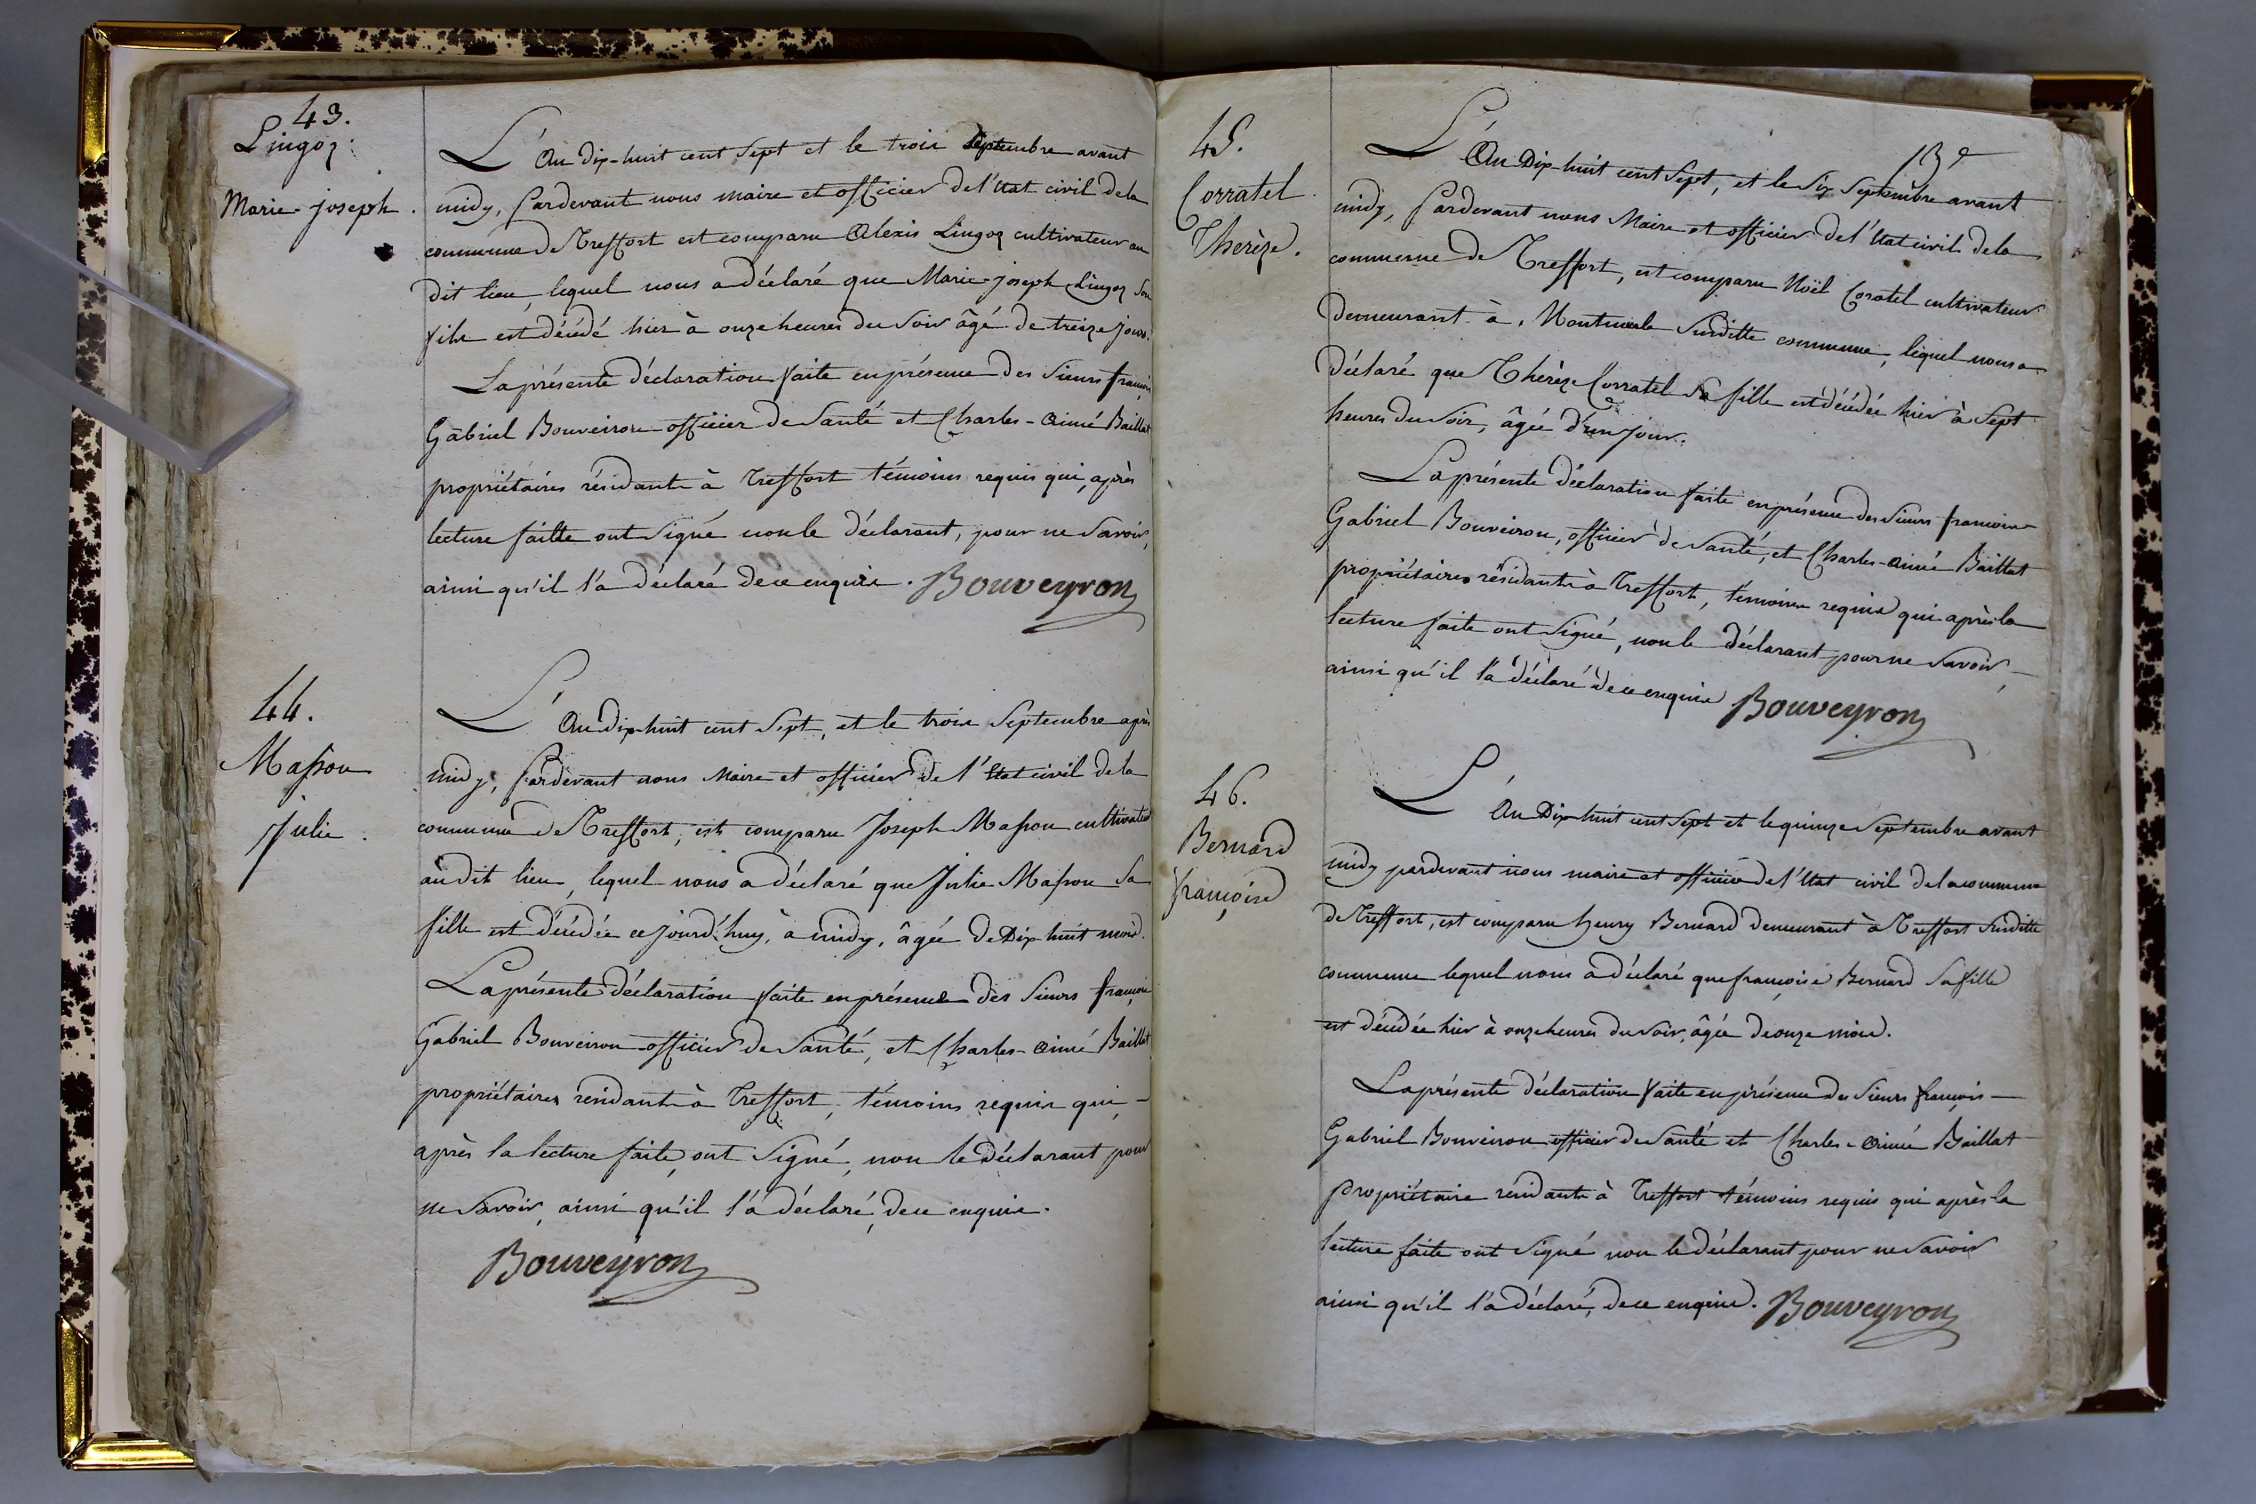 43.
Lingoz.
Marie-joseph.
L'An dix-huit cent sept et le trois Septembre avant
midy, Pardevant nous maire et officier de l'Etat civil de la
commune de Treffort est comparu Alexis Lingoz cultivateur au
dit lieu, lequel nous a déclaré que Marie-joseph Lingoz son
fils est décédé hier à onze heures du Soir âgé de treize jours.
La présente déclaration faite en présence des Sieurs françois
Gabriel Bouveiron officier de Santé et Charles-Aimé Baillat
propriétaires résidants à Treffort témoins requis qui, après
lecture faitte ont Signé non le déclarant, pour ne Savoir,
ainsi qu'il l'a déclaré de ce enquis. Bouveyron
44.
Masson
Julie.
L'An dix-huit cent Sept, et le trois Septembre après
midy, Pardevant nous Maire et officier de l'Etat civil de la
commune de Treffort, est comparu Joseph Masson cultivateur
au dit lieu, lequel nous a déclaré que Julie Masson Sa
fille est décédée ce jourd'huy, à midy, âgée de Dix huit mois.
La présente déclaration faite en présence des Sieurs françois
Gabriel Bouveiron officier de Santé, et Charles-Aimé Baillat
propriétaires résidants à Treffort, témoins requis qui,
après la lecture faite, ont Signé, non le déclarant pour
ne Savoir, ainsi qu'il l'a déclaré, de ce enquis.
Bouveyron
45.
Corratel
Therèze.
L'An Dix-huit cent Sept, et le Six Septembre avant
midy, Pardevant nous Maire et officier de l'Etat civil de la
commune de Treffort, est comparu Noël Coratel cultivateur
demeurant à Montmerle Susditte commune, lequel nous a
déclaré que Thérèze Corratel Sa fille est décédée hier à Sept
heures du Soir, âgée d'un jour.
La présente déclaration faite en présence des Sieurs françois
Gabriel Bouveiron, officier de Santé, et Charles-Aimé Baillat
propriétaires résidants à Treffort, témoins requis qui après la
lecture faite ont Signé, non le déclarant pour ne Savoir,
ainsi qu'il l'a déclaré de ce enquis Bouveyron
46.
Bernard
françoise
L'An Dix-huit cent Sept et le quinze Septembre avant
midy pardevant nous maire et officier de l'Etat civil de la commune
de Treffort, est comparu henry Bernard demeurant à Treffort Susditte
commune lequel nous a déclaré que françoise Bernard Sa fille
est décédée hier à onze heures du Soir, âgée de onze mois.
La présente déclaration faite en présence des Sieurs françois
Gabriel Bouveiron officier de Santé et Charles-Aimé Baillat
Propriétaire résidants à Treffort témoins requis qui après la
lecture faite ont Signé non le déclarant pour ne Savoir
ainsi qu'il l'a déclaré, de ce enquis. Bouveyron